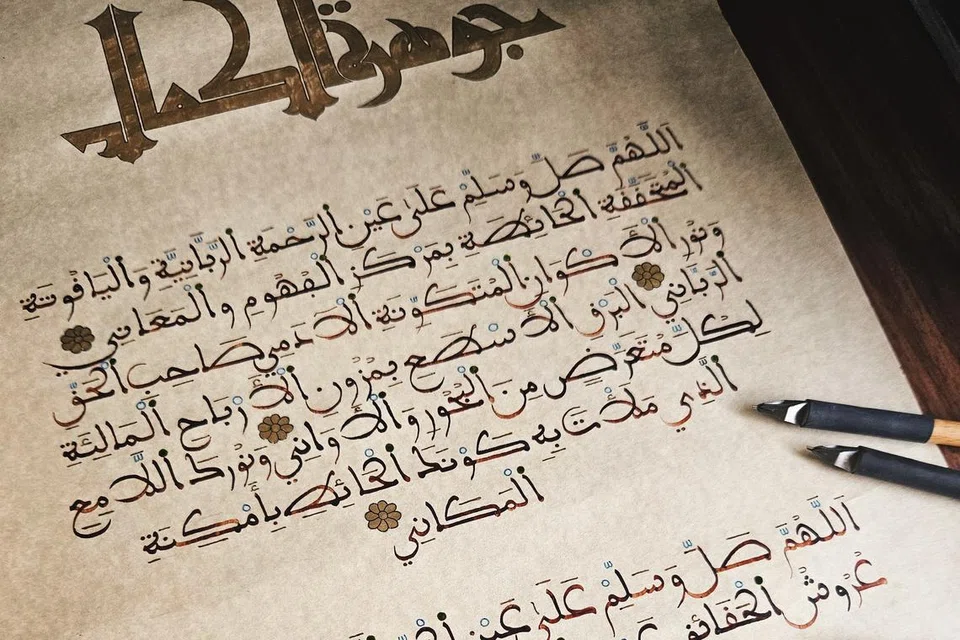 جوهرة الكمال
اَللَّهُمَّ صَلِّ وَسَلِّمْ عَلَىٰ عَيْنِ اِلرَّحْمَةِ اِلرَّبَّانِيَّةِ وَالْيَاقُوتَةِ
اِلْمُتَحَقِّقَةِ اِلْحَائِطَةِ بِمَرْكَزِ اِلْفُهُومِ وَالْمَعَانِي
وَنُورِ اِلْأَكْوَانِ اِلْمُتَكَوِّنَةِ اِلْآدَمِي صَاحِبِ اِلْحَقِّ
اِلرَّبَّانِي اِلْبَرْقِ اِلْأَسْطَعِ بِمُزُونِ اِلْأَرْبَاحِ اِلْمَالِئَةِ
لِكُلِّ مُتَعَرِّضٍ مِنَ اَلْبُحُورِ وَالْأَوَانِي وَنُورِكَ اَللَّامِعِ
اِلَّذِي مَلَأْتَ بِهِ كَوْنَكَ اَلْحَائِطَ بِأَمْكِنَةِ
اِلْمَكَانِي
اَللَّهُمَّ صَلِّ وَسَلِّمْ عَلَىٰ عَيْنِ
عُرُوشُ اَلْحَقَائِقِ